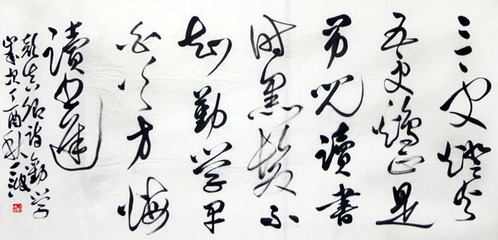 三更燈火
五更鷄正是
男兒讀書
時黑髮不
知勤學早
白首方悔
讀書遲
顏真卿詩勸學
歲在丁酉秋